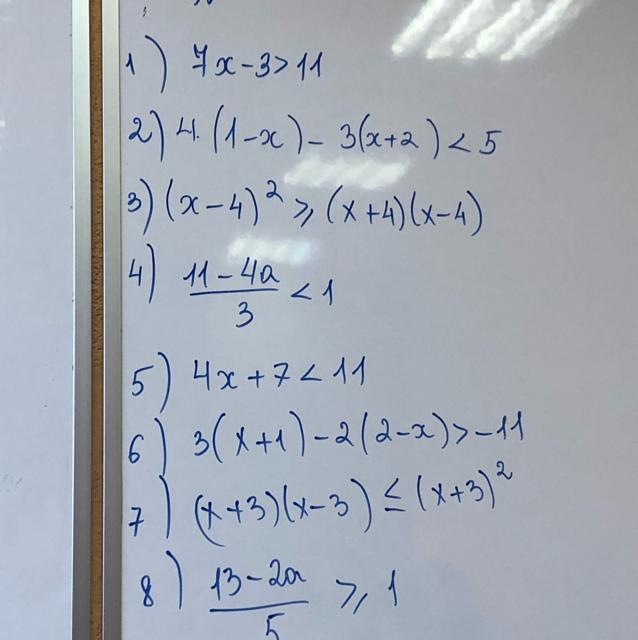 1) 7x-3>11
2) 4·(1-x)-3(x+2)<5
3) (x-4)²≥(x+4)(x-4)
4) (11-4a)/3<1
5) 4x+7<11
6) 3(x+1)-2(2-x)>-11
7) (x+3)(x-3)≤(x+3)²
8) (13-2a)/5≥1